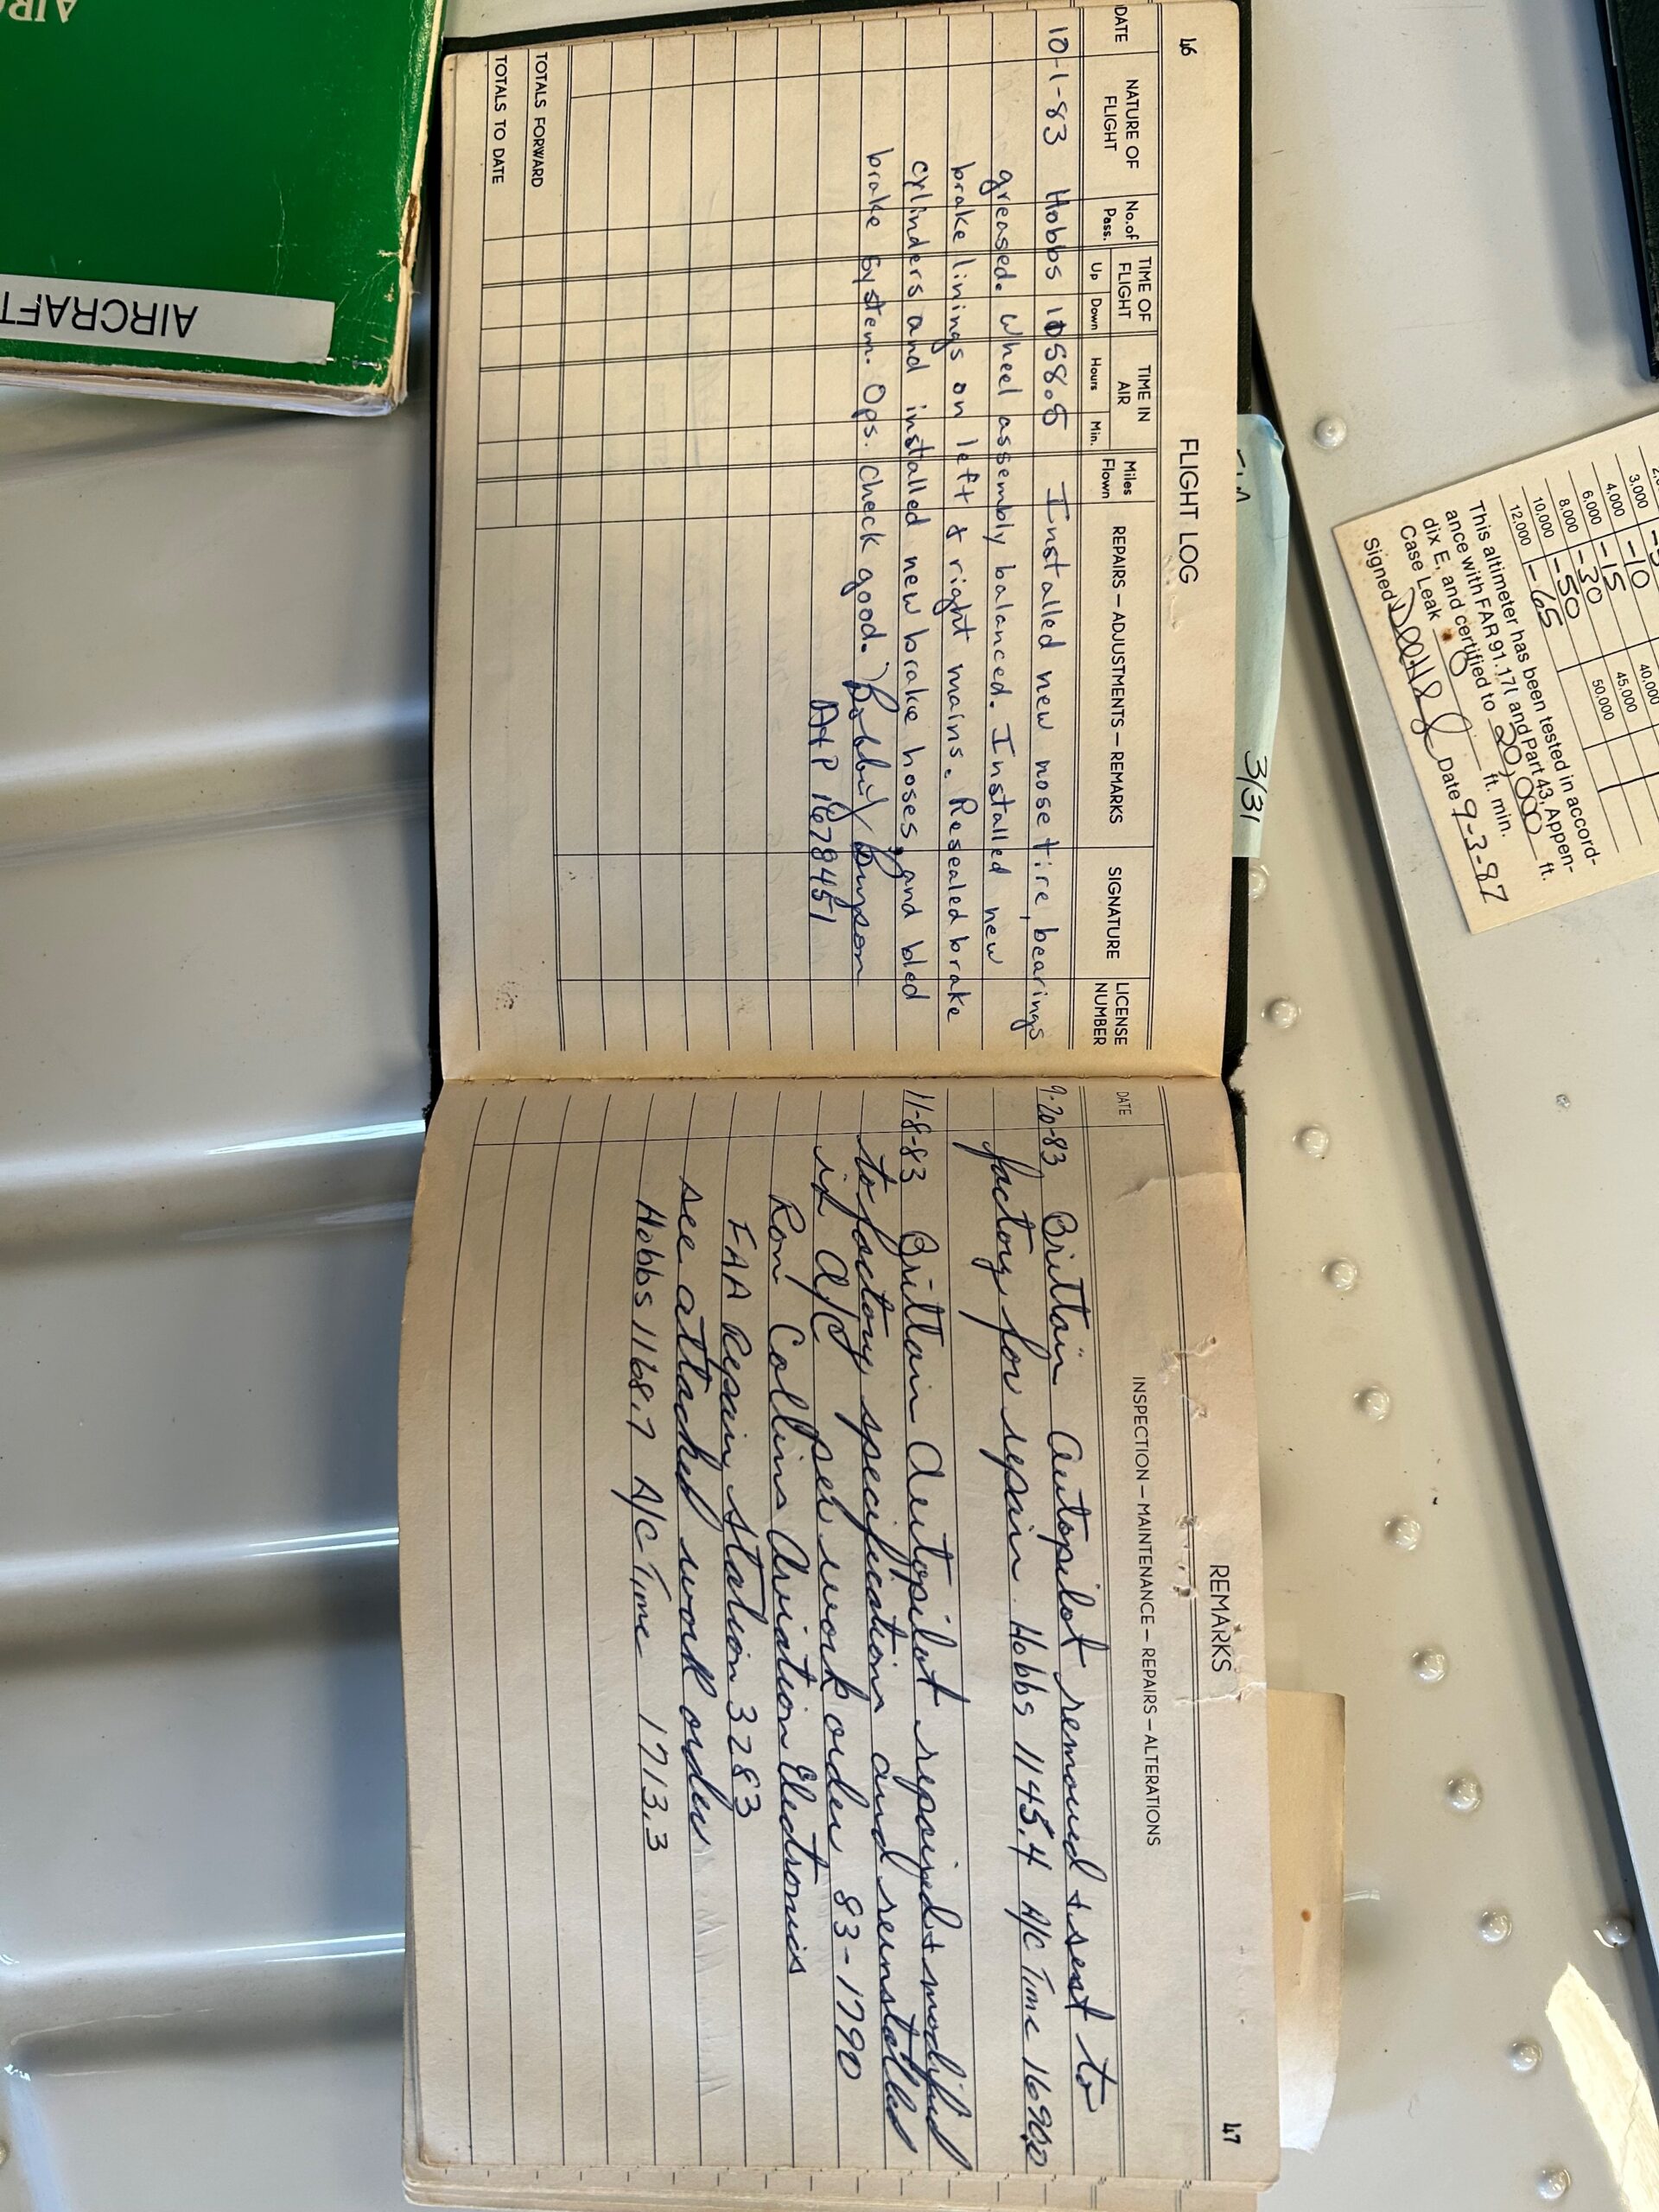 46
FLIGHT LOG
DATE
NATURE OF FLIGHT
No. of Pass.
TIME OF FLIGHT
Up
Down
TIME IN AIR
Hours
Min.
Miles Flown
REPAIRS — ADJUSTMENTS — REMARKS
SIGNATURE
LICENSE NUMBER
10-1-83 Hobbs 1058.5 Installed new nose tire, bearings
greased. Wheel assembly balanced. Installed new
brake linings on left & right mains. Resealed brake
cylinders and installed new brake hoses, and bled
brake system. Ops. check good.
A+P 1678451
TOTALS FORWARD
TOTALS TO DATE
47
REMARKS
DATE
INSPECTION — MAINTENANCE — REPAIRS — ALTERATIONS
9-20-83 Brittain Autopilot removed & sent to
factory for repair. Hobbs 1145.4 A/C Time
11-8-83 Brittain Autopilot repaired + modified
to factory specifications and reinstalled
in A/C per work order 83-1790
Ron Collins Aviation Electronics
FAA Repair station 3283
see attached work order
Hobbs 1168.7 A/C Time 1713.3
3/31
AIRCRAFT
3,000
4,000 -10
6,000 -15
8,000 -30
10,000 -50
12,000 -65
40,000
45,000
50,000
This altimeter has been tested in accord-
ance with FAR 91.171 and Part 43, Appen-
dix E, and certified to 20,000 ft.
Case Leak 0 ft. min.
Signed Date 9-3-87